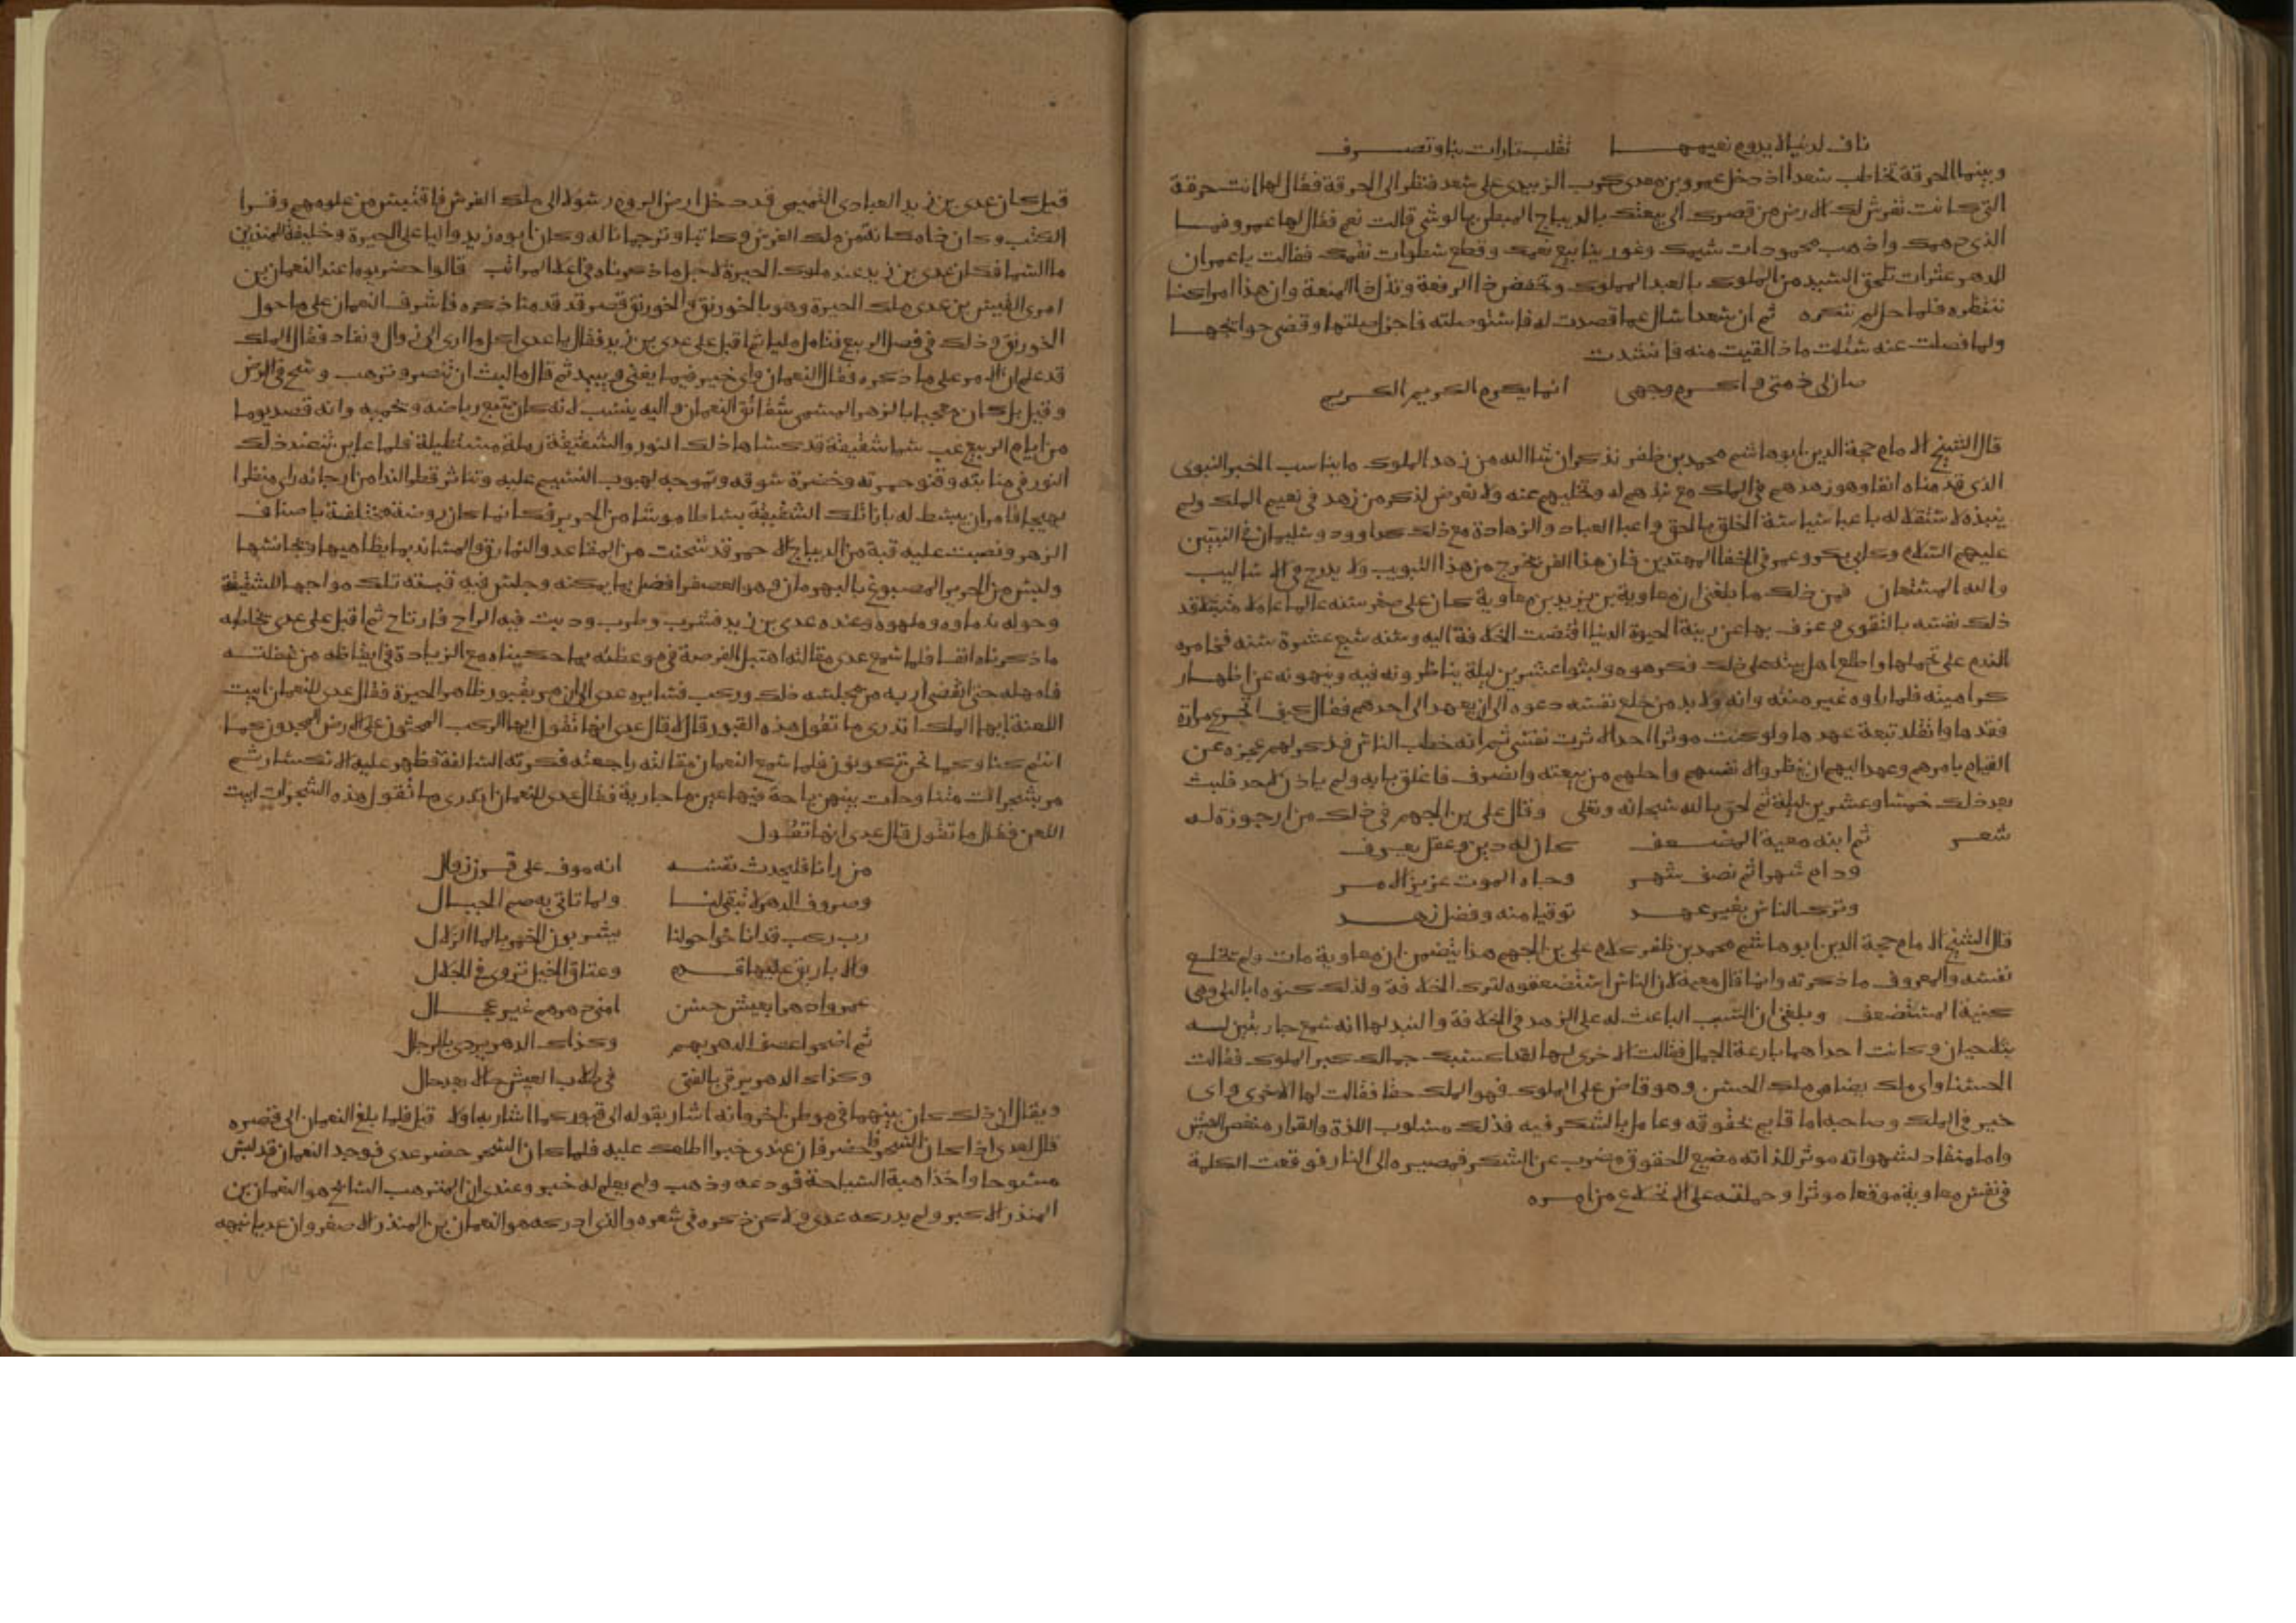 فاف لدنيا لا يدوم نعيمها تقلب تارات بنا وتصرف
وبينما الحرقة تخاطب سعدا اذ دخل عمرو بن معدي كرب الزبيدي على سعد فنظر الى الحرقة فقال لها انت حرقة
التي كانت تفرش لك الارض من قصرك الى بيعتك بالديباج المبطن بالوشي قالت نعم فقال لها عمرو فما
الذي دهمك واذهب محمودات شيمك وغور ينابيع نعمك وقطع سطوات نقمك فقالت يا عمران
للدهر عثرات تلحق السيد من الملوك بالعبد المملوك وتخفض ذا الرفعة وتذل ذا المنعة وان هذا امرا كنا
ننتظره فلما حل لم ننكره ثم ان سعدا سال عما قصدت له فاستوصلته فاجزل صلتها وقضى حوائجها
ولما فصلت عنه سئلت ماذا لقيت منه فانشدت
صان لى ذمتي واكرم وجهي انما يكرم الكريم الكريم
قال الشيخ الامام حجة الدين ابو هاشم محمد بن ظفر نذكر ان شا الله من زهد الملوك ما يناسب الخبر النبوي
الذي قدمناه انفا وهو زهدهم في الملك مع نبذهم له وتخليهم عنه ولا نعرض لذكر من زهد في نعيم الملك ولم
ينبذه لاستقلاله باعبا سياسة الخلق بالحق واعبا العباد والزهادة مع ذلك كداوود وسليمان في النبيين
عليهم السلام وكابي بكر وعمر في الخلفا المهتدين فان هذا الفن يخرج من هذا التبويب ولا يدرج في الاساليب
والله المستعان فمن ذلك ما بلغني ان معاوية بن يزيد بن معاوية كان على صغر سنه عالما عاملا متبتلا قد
ذلك نفسه بالتقوى وعزف بها عن زينة الحيوة الدنيا افضت الخلافة اليه وسنه سبع عشرة سنه فخامره
الندم على تحملها واطلع اهل بيته على ذلك فكرهوه ولبثوا عشرين ليلة يناظرونه فيه وينهونه عن اظهار
كراهيته فلما راوه غير منته وانه ولا بد من خلع نفسه دعوه الى ان يعهد الى احدهم فقال كيف اتجرع مرارة
فقدها واتقلد تبعة عهدها ولو كنت موثرا احدا لاثرت نفسي ثم انه خطب الناس فذكر لهم عجزه عن
القيام بامرهم وعهد اليهم ان ينظروا لانفسهم واحلهم من بيعته وانصرف فاغلق بابه ولم ياذن لاحد فلبث
بعد ذلك خمسا وعشرين ليلة ثم لحق بالله سبحانه وتعلى وقال علي بن الجهم في ذلك من ارجوزة له
شعر ثم ابنه معية المضعف كان له دين وعقل يعرف
ودام شهرا ثم نصف شهر وجاه الموت عزيز الامر
وترك الناس بغير عهد توقيا منه وفضل زهد
قال الشيخ الامام حجة الدين ابو هاشم محمد بن ظفر كلام علي بن الجهم هذا يتضمن ان معاوية مات ولم يخلع
نفسه والمعروف ما ذكرته وانما قال معية لان الناس استضعفوه لترك الخلافة ولذلك كنوه ابا ليلى وهي
كنية المستضعف وبلغني ان السبب الباعث له على الزهد في الخلافة والنبذ لها انه سمع جاريتين له
يتلحيان وكانت احداهما بارعة الجمال فقالت الاخرى لها لقد اكسبك جمالك كبر الملوك فقالت
الحسنا واي ملك يضاهي ملك الحسن وهو قاض على الملوك فهو الملك حقا فقالت لها الاخرى واي
خير في الملك وصاحبه اما قايم بحقوقه وعامل بالشكر فيه فذلك مسلوب اللذة والقرار منغص العيش
واما منقاد لشهواته موثر للذاته مضيع للحقوق مضرب عن الشكر فمصيره الى النار فوقعت الكلمة
في نفس معاوية موقعا موثرا وحملته على الانخلاع من امره
قيل كان عدي بن زيد العبادي التميمي قد دخل ارض الروم رسولا الى ملك الفرس فاقتبس من علومهم وقرا
الكتب وكان ذا مكانة من ملك الفرس وكاتبا وترجمانا له وكان ابوه زيد واليا على الحيرة وخليفة المنذر بن
ما السما فكان عدي بن زيد عند ملوك الحيرة لاجل ما ذكرناه في اعلا المراتب قالوا حضر يوما عند النعمان بن
امرى القيس بن عدي ملك الحيرة وهو بالخورنق والخورنق قصر قد قدمنا ذكره فاشرف النعمان على ما حول
الخورنق وذلك في فصل الربيع فتامل مليا ثم اقبل على عدي بن زيد فقال يا عدي اكل ما ارى الى زوال ونفاد فقال الملك
قد علم ان الامر على ما ذكره فقال النعمان واي خير فيما يفنى ويبيد ثم قال ما لبث ان تنصر وترهب وساح في الارض
وقيل بل كان معجبا بالزهر المسمى شقائق النعمان واليه ينسب لانه كان يتبع رياضه ويحميه وانه قصد يوما
من ايام الربيع غب سما شقيقة قد كساها ذلك النور والشقيقة رملة مستطيلة فلما عاين تنضد ذلك
النور في منابته وقنو حمرته وخضرة سوقه وتموجه لهبوب النسيم عليه وتناثر قطر الندا من ارجائه راى منظرا
بهيجا فامر ان يبسط له بازا تلك الشقيقة بساطا موشا من الحرير فكانما كان روضة مختلفة باصناف
الزهر ونصبت عليه قبة من الديباج الاحمر قد شحنت من المقاعد والنمارق والمساند بما يظاهيها ويجانسها
ولبس من الحرير المصبوغ بالبهرمان وهو العصفر افضل ما يمكنه وجلس فيه قبته تلك مواجها للشقيقة
وحوله ندماوه وملهوه وعنده عدي بن زيد فشرب وطرب ودبت فيه الراح فارتاح ثم اقبل على عدي يخاطبه
ما ذكرناه انفا فلما سمع عدي مقالته اهتبل الفرصة في موعظته بما حكيناه مع الزيادة في ايقاظه من غفلته
فامهله حتى انقضى اربه من مجلسه ذلك وركب فسايره عدي الى ان مر بقبور ظاهر الحيرة فقال عدي للنعمان ابيت
اللعنة ايها الملك اتدري ما تقول هذه القبور قال لا قال عدي انها تقول ايها الركب المحثون على الارض المجدون كما
انتم كنا وكما نحن تكونون فلما سمع النعمان مقالته راجعته فكرته السالفة فظهر عليه الانكسار ثم
مر بشجرات متناوحات بينهن باحة فيها عين ما جارية فقال عدي للنعمان اتدري ما تقول هذه الشجرات ابيت
اللعن فقال ما تقول قال عدي انها تقول
من رانا فليحدث نفسه انه موف على قرن زوال
وصروف الدهر لا تبقى لها ولما تاتي به صم الجبال
رب ركب قد اناخوا حولنا يشربون الخمر بالما الزلال
والاباريق عليها قدم وعتاق الخيل تردى في الجلال
عمروا دهرا بعيش حسن امني دهرهم غير عجال
ثم اضحوا عصف الدهر بهم وكذاك الدهر يودي بالرجال
وكذاك الدهر يرمي بالفتى في طلاب العيش حالا بعد حال
ويقال ان ذلك كان بينهما في موطن اخر وانه اشار بقوله الى قبور كما اشار به اولا قيل فلما بلغ النعمان الى قصره
قال لعدي اذا كان السحر فاحضر فان عندي خبرا اطلعك عليه فلما كان السحر حضر عدي فوجد النعمان قد لبس
مسوحا واخذ اهبة السياحة فودعه وذهب ولم يعلم له خبر وعندي ان المترهب السائح هو النعمان بن
المنذر الاكبر ولم يدركه عدي ولاكن ذكره في شعره والذي ادركه هو النعمان بن المنذر الاصغر وان عديا نبهه